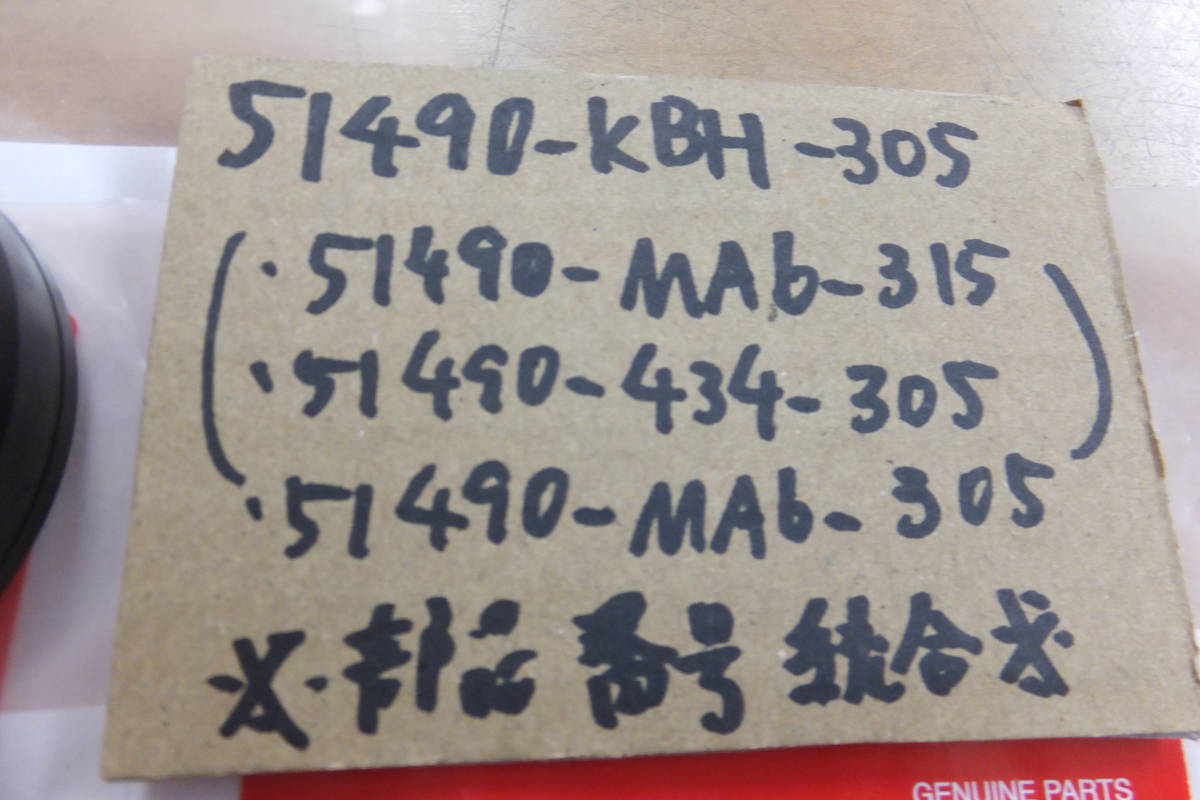 51490-KBH-305
(・51490-MA6-315
・51490-434-305
・51490-MA6-305)
※部品番号統合
GENUINE PARTS